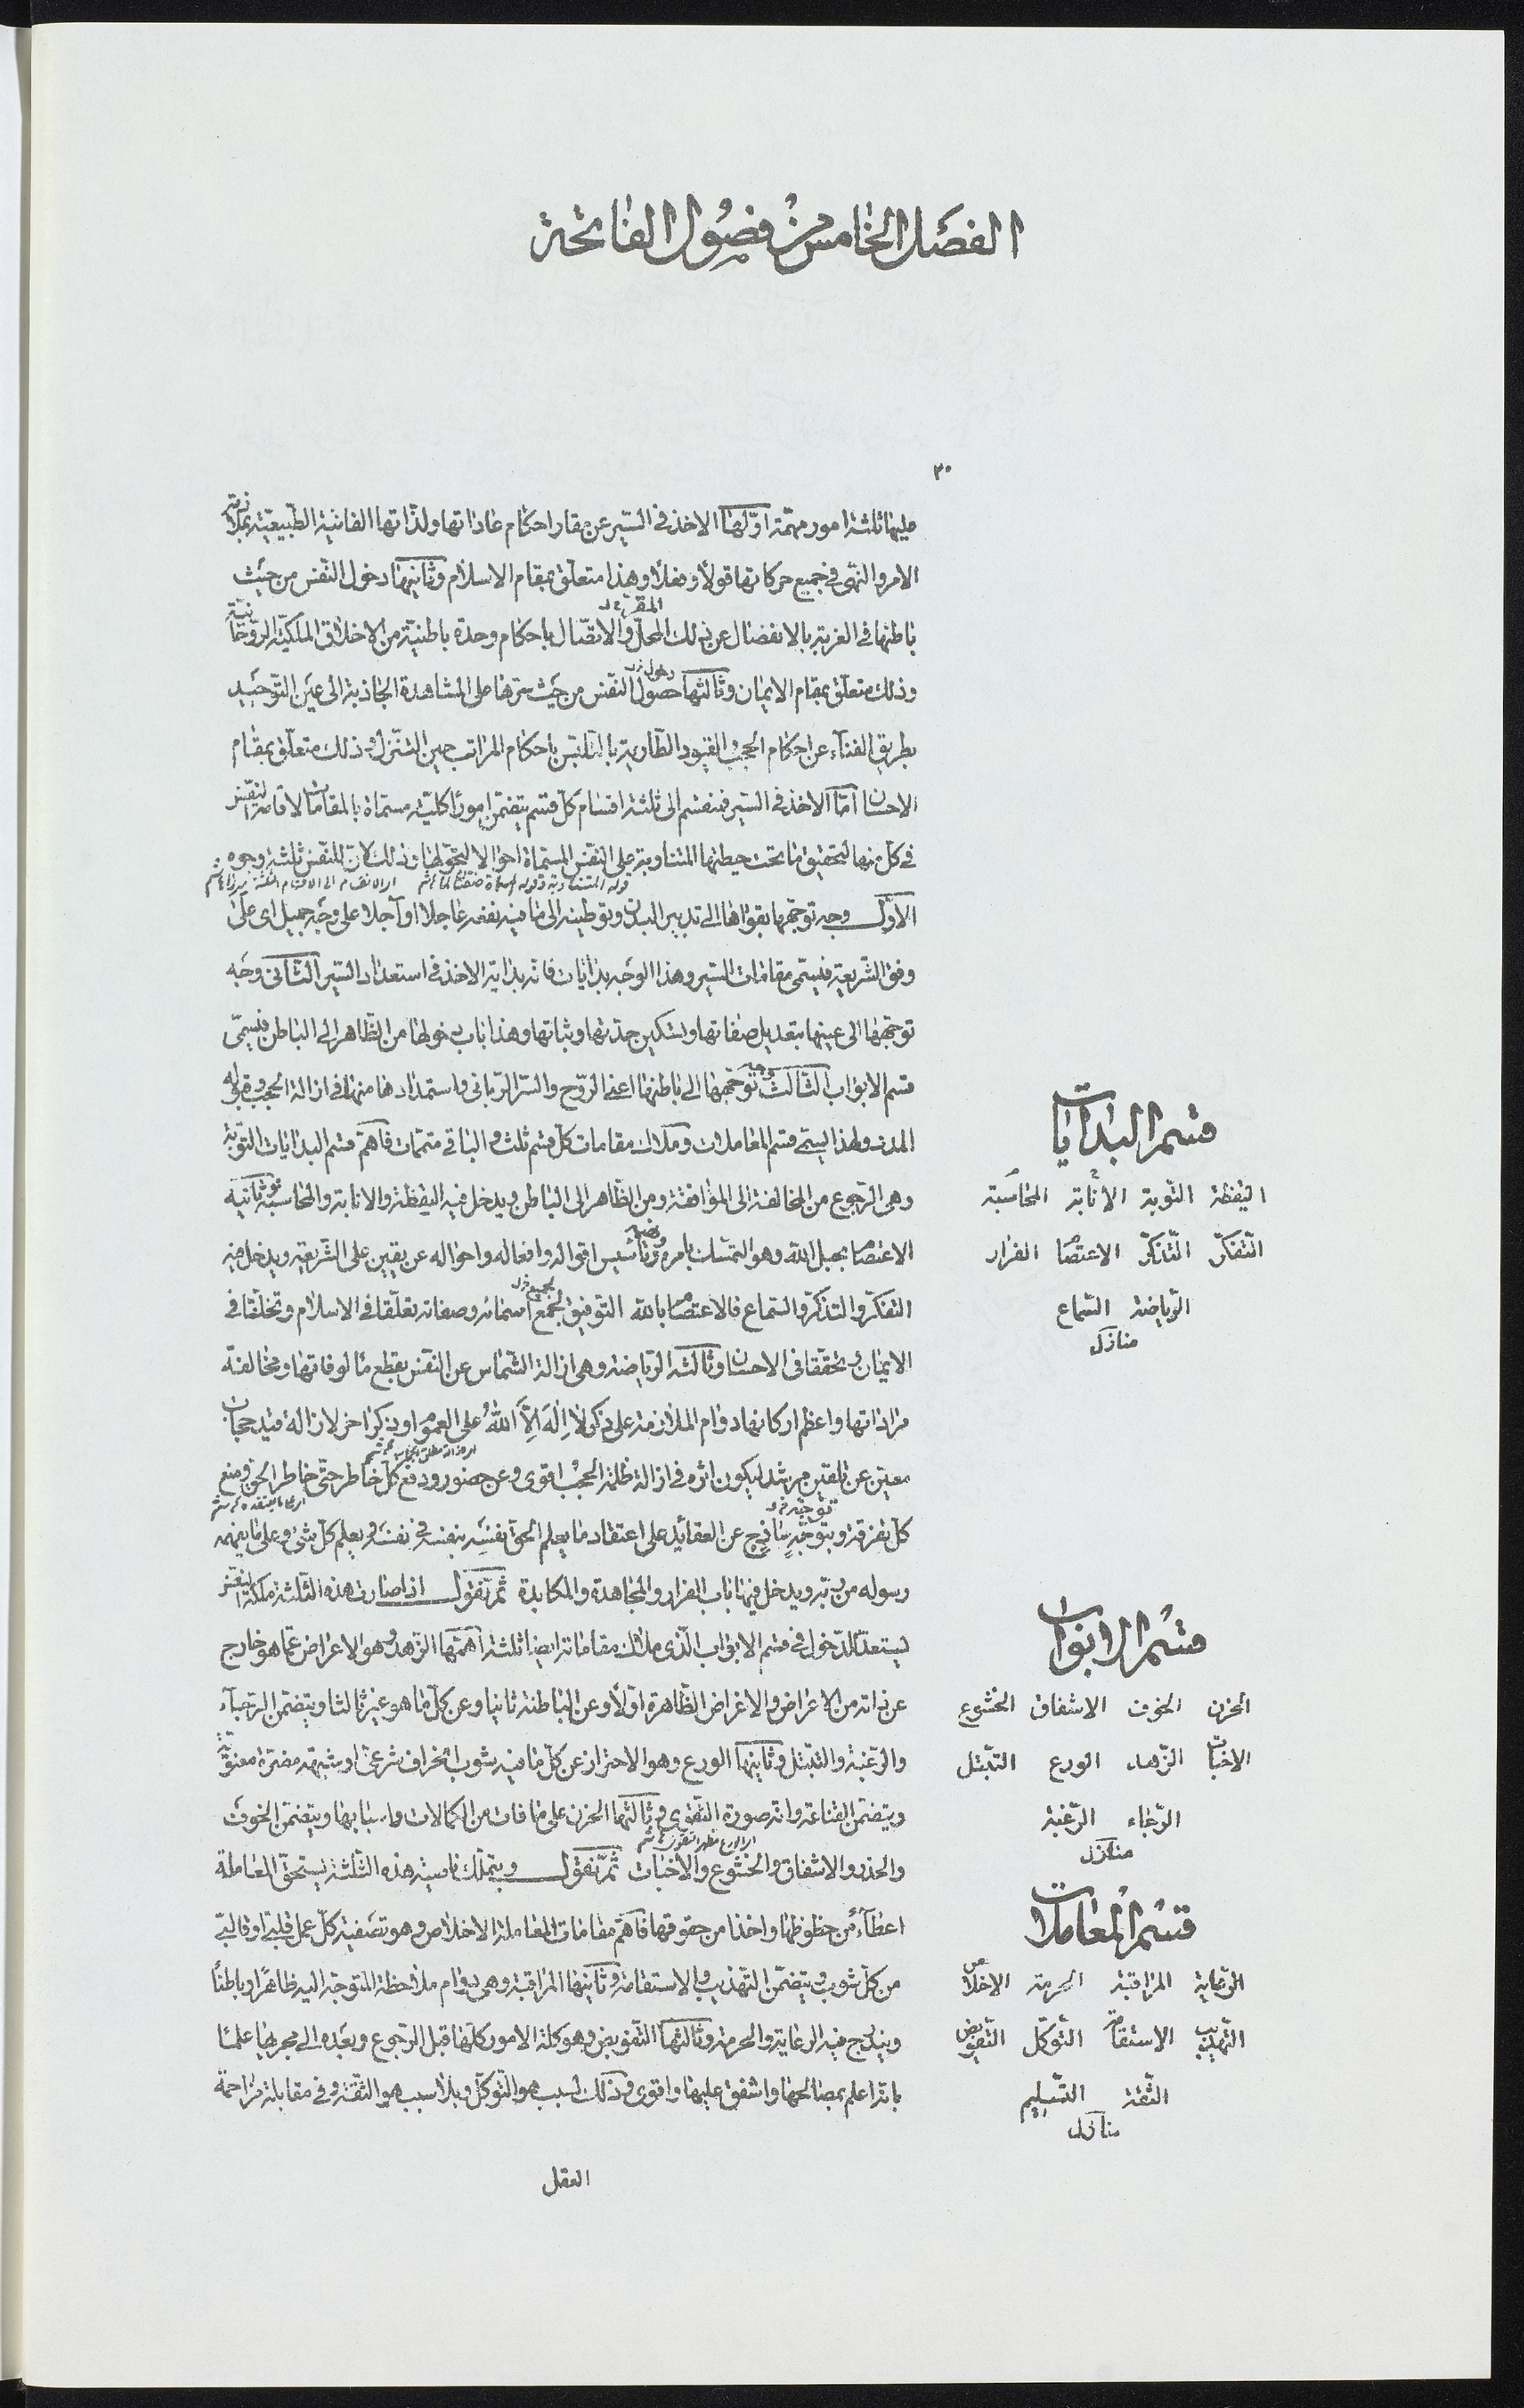 الفصل الخامس من فصول الفاتحة
٣٠
عليها ثلثة امور مهمّة اوّلها الاخذ فى السّير عن مقار احكام عاداتها ولذّاتها الفانية الطّبيعيّة بملازمة
الامر والنّهى فى جميع حركاتها قولاً وفعلاً وهذا متعلّق بمقام الاسلام وثانيها دخول النّفس من حيث
باطنها فى الغربة بالانفصال عن ذلك المحلّ والاتّصال باحكام وحدة باطنيّة من الاخلاق الملكيّة الرّوحانيّة
وذلك متعلّق بمقام الايمان وثالثها حصول النّفس من حيث سرّها على المشاهدة الجاذبة الى عين التّوحيد
بطريق الفنآء عن احكام الحجب والقيود الطّارية بالتّلبّس باحكام المراتب حين التّنزّل وذلك متعلّق بمقام
الاحسان امّا الاخذ فى السّير فمنقسم الى ثلثة اقسام كلّ قسم يتضمّن امورًا كليّة مسمّاة بالمقامات لاقامة النّفس
فى كلّ منها لتحقيق ما تحت حيطتها المتناوبة على النّفس المسمّاة احوالا لتحوّلها وذلك لانّ للنّفس ثلثة وجوه
الاوّل وجه توجّهها بقواها الى تدبير البدن وتوطينه الى ما فيه نفعه عاجلا او آجلا على وجه جميل اى على
وفق الشّريعة فيسمّى مقامات السّير وهذا الوجه بدايات فانه بداية الاخذ فى استعداد السّير الثّانى وجه
توجّهها الى عينها بتعديل صفاتها وتسكين حدّتها وثباتها وهذا باب دخولها من الظّاهر الى الباطن فيسمّى
قسم الابواب الثّالث توجّهها الى باطنها اعنى الرّوح والسّرّ الرّبانى واستمدادها منهما فى ازالة الحجب وقبوله
المدد ولهذا يسمّى قسم المعاملات وملاك مقامات كلّ قسم ثلث والباقى متمّمات فاهمّ قسم البدايات التّوبة
وهى الرّجوع من المخالفة الى الموافقة ومن الظّاهر الى الباطن ويدخل فيه اليقظة والانابة والمحاسبة وثانيه
الاعتصام بحبل الله وهو التمسّك بامره وتاسيس اقواله وافعاله واحواله عن يقين على الشّريعة ويدخل فيه
التفكّر والتذكّر والسّماع فالاعتصام بالله التوفيق لجمع اسمائه وصفاته تعلّقا فى الاسلام وتخلّقا فى
الايمان وتحقّقا فى الاحسان وثالثه الرّياضة وهى ازالة الشّماس عن النّفس بقطع مالوفاتها ومخالفة
مراداتها واعظم اركانها دوام الملازمة على ذكر لا اِلٰهَ اِلَّا اللهُ على العموم او بذكر اخر لازالة قيد حجاب
معيّن عن تلقين مرشد ليكون اثره فى ازالة ظلمة الحجب اقوى وعن حضور ودفع كلّ خاطر حتّى خاطر الحقّ ومنع
كلّ تفرقة وبتوجّهٍ ساذجٍ عن العقائد على اعتقاد ما يعلم الحقّ نفسَه بنفسه فى نفسه ويعلم كلّ شىء وعلى ما يفهمه
رسوله من ربّه ويدخل فيها باب الفرار والمجاهدة والمكابدة ثمّ نقول اذا صارت هذه الثّلثة ملكة النّفس
يستعدّ للدّخول فى قسم الابواب الّذى ملاك مقاماته ايضا ثلثة اهمّها الزّهد وهو الاعراض عمّا هو خارج
عن ذاته من الاعراض والاغراض الظّاهرة اوّلا وعن الباطنة ثانيا وعن كلّ ما هو غير ثالثا ويتضمّن الرّجآء
والرّغبة والتّبتّل وثانيها الورع وهو الاحتراز عن كلّ ما فيه شوب انحراف شرعىّ او شبهة مضرّة معنويّة
ويتضمّن القناعة وانه صورة التّقوى وثالثها الحزن على ما فات من الكمالات واسبابها ويتضمّن الخوف
والحذر والاشفاق والخشوع والاخبات ثمّ نقول وبتملّك ناصية هذه الثّلثة يستحقّ المعاملة
اعطآءً من حظوظها واخذا من حقوقها فاهمّ مقامات المعاملة الاخلاص وهو تصفية كلّ عمل قلبىّ او قالبىّ
من كلّ شوب ويتضمّن التّهذيب والاستقامة وثانيها المراقبة وهى دوام ملاحظة المتوجّه اليه ظاهرًا وباطنًا
ويندرج فيه الرعاية والحرمة وثالثها التّفويض وهو كلة الامور كلّها قبل الرّجوع وبعده الى مجريها علما
بانّه اعلم بمصالحها واشفق عليها واقوى وذلك لسبب هو التّوكّل وبلا سبب هو الثّقة وفى مقابلة مزاحمة
العقل
قسم البدايات
اليقظة التّوبة الأنابة المحاسبة
التّفكّر التّذكّر الاعتصام الفرار
الرّياضة السّماع
منازل
قسم الابواب
الحزن الخوف الاشفاق الخشوع
الاخبات الزّهد الورع التّبتّل
الرّجاء الرّغبة
منازل
قسم المعاملات
الرّعاية المراقبة الحرمة الاخلاص
التّهذيب الاستقامة التّوكّل التّفويض
الثّقة التّسليم
منازل